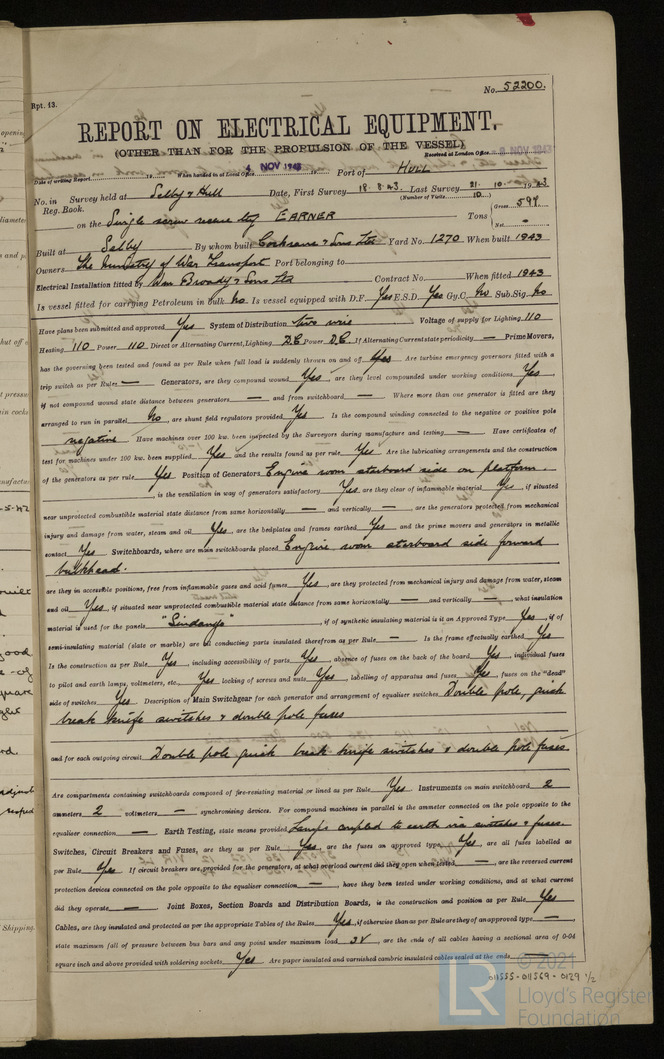 Rpt. 13.
No. 52200.
REPORT ON ELECTRICAL EQUIPMENT.
(OTHER THAN FOR THE PROPULSION OF THE VESSEL)
Received at London Office
Date of writing Report 19 When handed in to Local Office 4 NOV 1943 Port of HULL
No. in Survey held at Selby & Hull Date, First Survey 18.8.43. Last Survey 21. 10. 1943
Reg. Book. (Number of Visits 10)
on the Single screw rescue tug EARNER Tons Gross 597 Net -
Built at Selby By whom built Cochrane & Sons Ltd Yard No. 1270 When built 1943
Owners The Ministry of War Transport Port belonging to
Electrical Installation fitted by Wm Broady & Sons Ltd Contract No. When fitted 1943
Is vessel fitted for carrying Petroleum in bulk No Is vessel equipped with D.F. Yes E.S.D. Yes Gy.C. No Sub.Sig. No
Have plans been submitted and approved Yes System of Distribution two wire Voltage of supply for Lighting 110
Heating 110 Power 110 Direct or Alternating Current, Lighting D.C Power D.C If Alternating Current state periodicity — Prime Movers,
has the governing been tested and found as per Rule when full load is suddenly thrown on and off Yes Are turbine emergency governors fitted with a
trip switch as per Rule — Generators, are they compound wound Yes, are they level compounded under working conditions Yes,
if not compound wound state distance between generators — and from switchboard — Where more than one generator is fitted are they
arranged to run in parallel No, are shunt field regulators provided Yes Is the compound winding connected to the negative or positive pole
negative Have machines over 100 kw. been inspected by the Surveyors during manufacture and testing — Have certificates of
test for machines under 100 kw. been supplied Yes and the results found as per rule Yes Are the lubricating arrangements and the construction
of the generators as per rule Yes Position of Generators Engine room starboard side on platform.
, is the ventilation in way of generators satisfactory Yes are they clear of inflammable material Yes, if situated
near unprotected combustible material state distance from same horizontally — and vertically —, are the generators protected from mechanical
injury and damage from water, steam and oil Yes, are the bedplates and frames earthed Yes and the prime movers and generators in metallic
contact Yes Switchboards, where are main switchboards placed Engine room starboard side forward
bulkhead.
are they in accessible positions, free from inflammable gases and acid fumes Yes, are they protected from mechanical injury and damage from water, steam
and oil Yes, if situated near unprotected combustible material state distance from same horizontally — and vertically —, what insulation
material is used for the panels "Sindanyo", if of synthetic insulating material is it an Approved Type Yes, if of
semi-insulating material (slate or marble) are all conducting parts insulated therefrom as per Rule — Is the frame effectually earthed Yes
Is the construction as per Rule Yes, including accessibility of parts Yes, absence of fuses on the back of the board Yes, individual fuses
to pilot and earth lamps, voltmeters, etc. Yes locking of screws and nuts Yes, labelling of apparatus and fuses Yes, fuses on the "dead"
side of switches Yes Description of Main Switchgear for each generator and arrangement of equaliser switches Double pole, quick
break knife switches & double pole fuses
and for each outgoing circuit Double pole quick break knife switches & double pole fuses.
Are compartments containing switchboards composed of fire-resisting material or lined as per Rule Yes Instruments on main switchboard 2
ammeters 2 voltmeters — synchronising devices. For compound machines in parallel is the ammeter connected on the pole opposite to the
equaliser connection — Earth Testing, state means provided Lamps coupled to earth via switches & fuses.
Switches, Circuit Breakers and Fuses, are they as per Rule Yes, are the fuses an approved type Yes, are all fuses labelled as
per Rule Yes If circuit breakers are provided for the generators, at what overload current did they open when tested —, are the reversed current
protection devices connected on the pole opposite to the equaliser connection —, have they been tested under working conditions, and at what current
did they operate — Joint Boxes, Section Boards and Distribution Boards, is the construction and position as per Rule Yes
Cables, are they insulated and protected as per the appropriate Tables of the Rules Yes, if otherwise than as per Rule are they of an approved type —,
state maximum fall of pressure between bus bars and any point under maximum load 3V, are the ends of all cables having a sectional area of 0·04
square inch and above provided with soldering sockets Yes Are paper insulated and varnished cambric insulated cables sealed at the ends —
© 2021
LR
Lloyd's Register
Foundation
011555-011569-0129 1/2